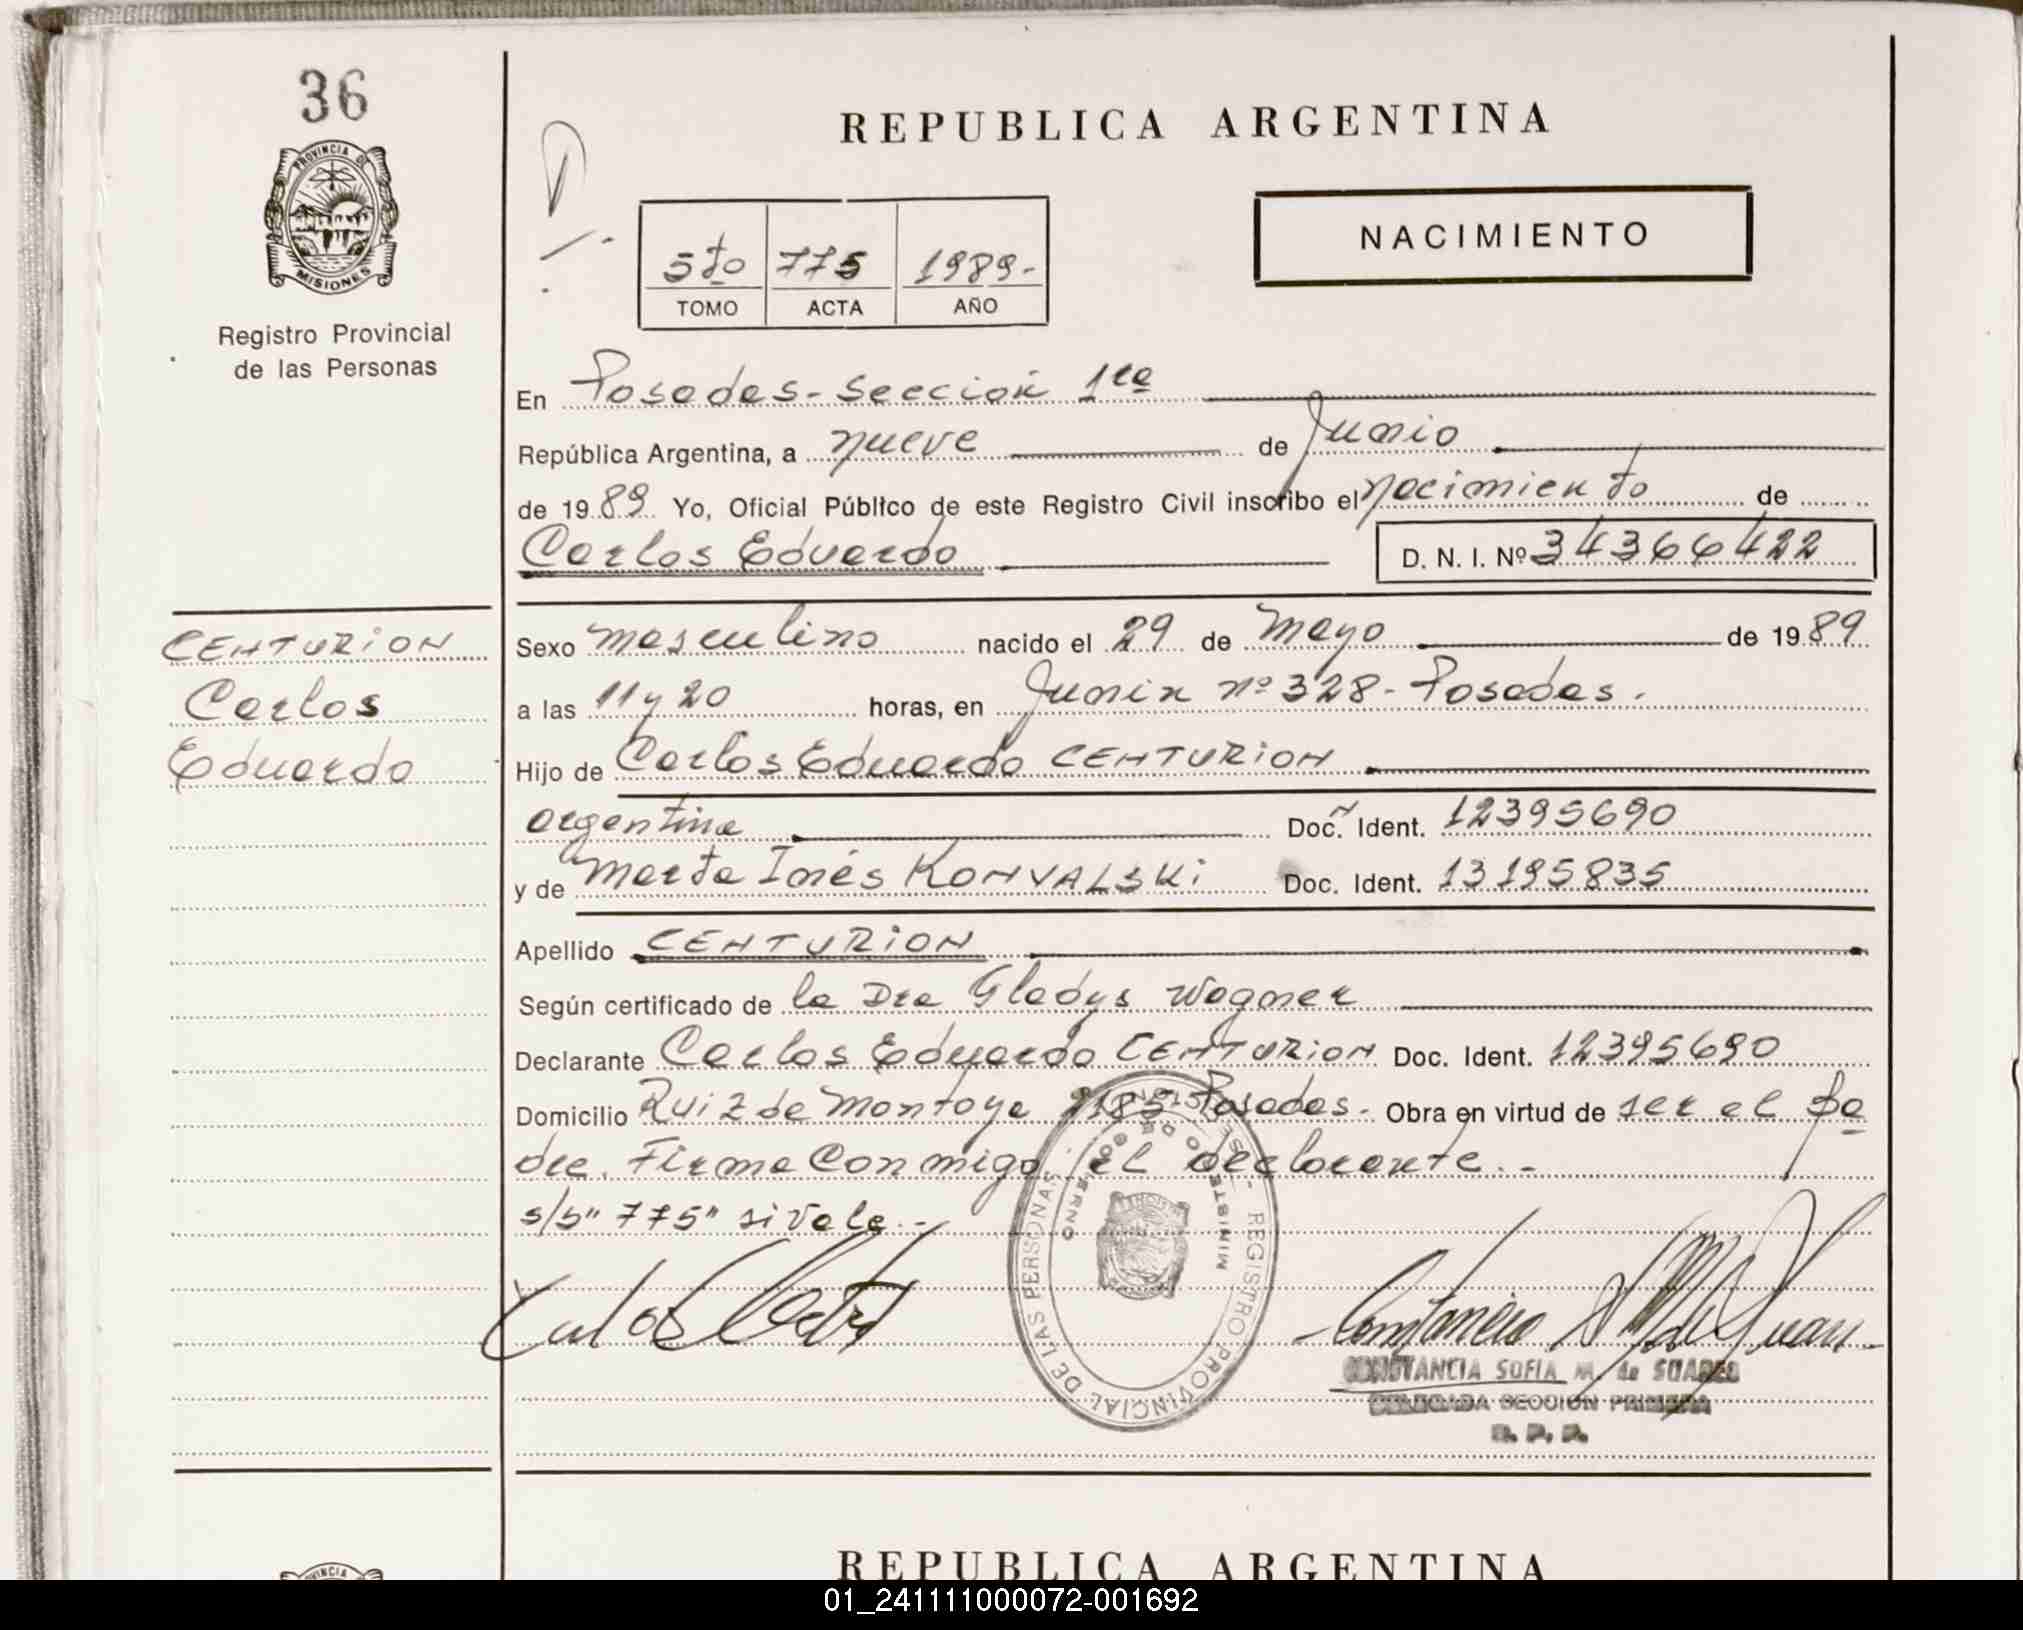 36
PROVINCIA DE
MISIONES
Registro Provincial
de las Personas
REPUBLICA ARGENTINA
NACIMIENTO
5to 775 1989.-
TOMO ACTA AÑO
En Posadas - Sección 1ra
República Argentina, a nueve de Junio
de 1989 Yo, Oficial Público de este Registro Civil inscribo el nacimiento de
Carlos Eduardo D. N. I. Nº 34366422
CENTURION
Carlos
Eduardo
Sexo masculino nacido el 29 de Mayo de 1989
a las 11 y 20 horas, en Junin nº 328 - Posadas.
Hijo de Carlos Eduardo CENTURION
argentina Doc. Ident. 12395690
y de Marta Inés KONVALSKI Doc. Ident. 13195835
Apellido CENTURION
Según certificado de la Dra Gladys Wagner
Declarante Carlos Eduardo CENTURION Doc. Ident. 12395690
Domicilio Ruiz de Montoya 2185 Posadas.- Obra en virtud de ser el pa
dre. Firma Conmigo el declarante.-
s/b" 775" si vale.-
REGISTRO PROVINCIAL DE LAS PERSONAS
MINISTERIO DE GOBIERNO
CONSTANCIA SOFIA M. de SUAREZ
DELEGADA SECCION PRIMERA
R. P. P.
REPUBLICA ARGENTINA
01_241111000072-001692